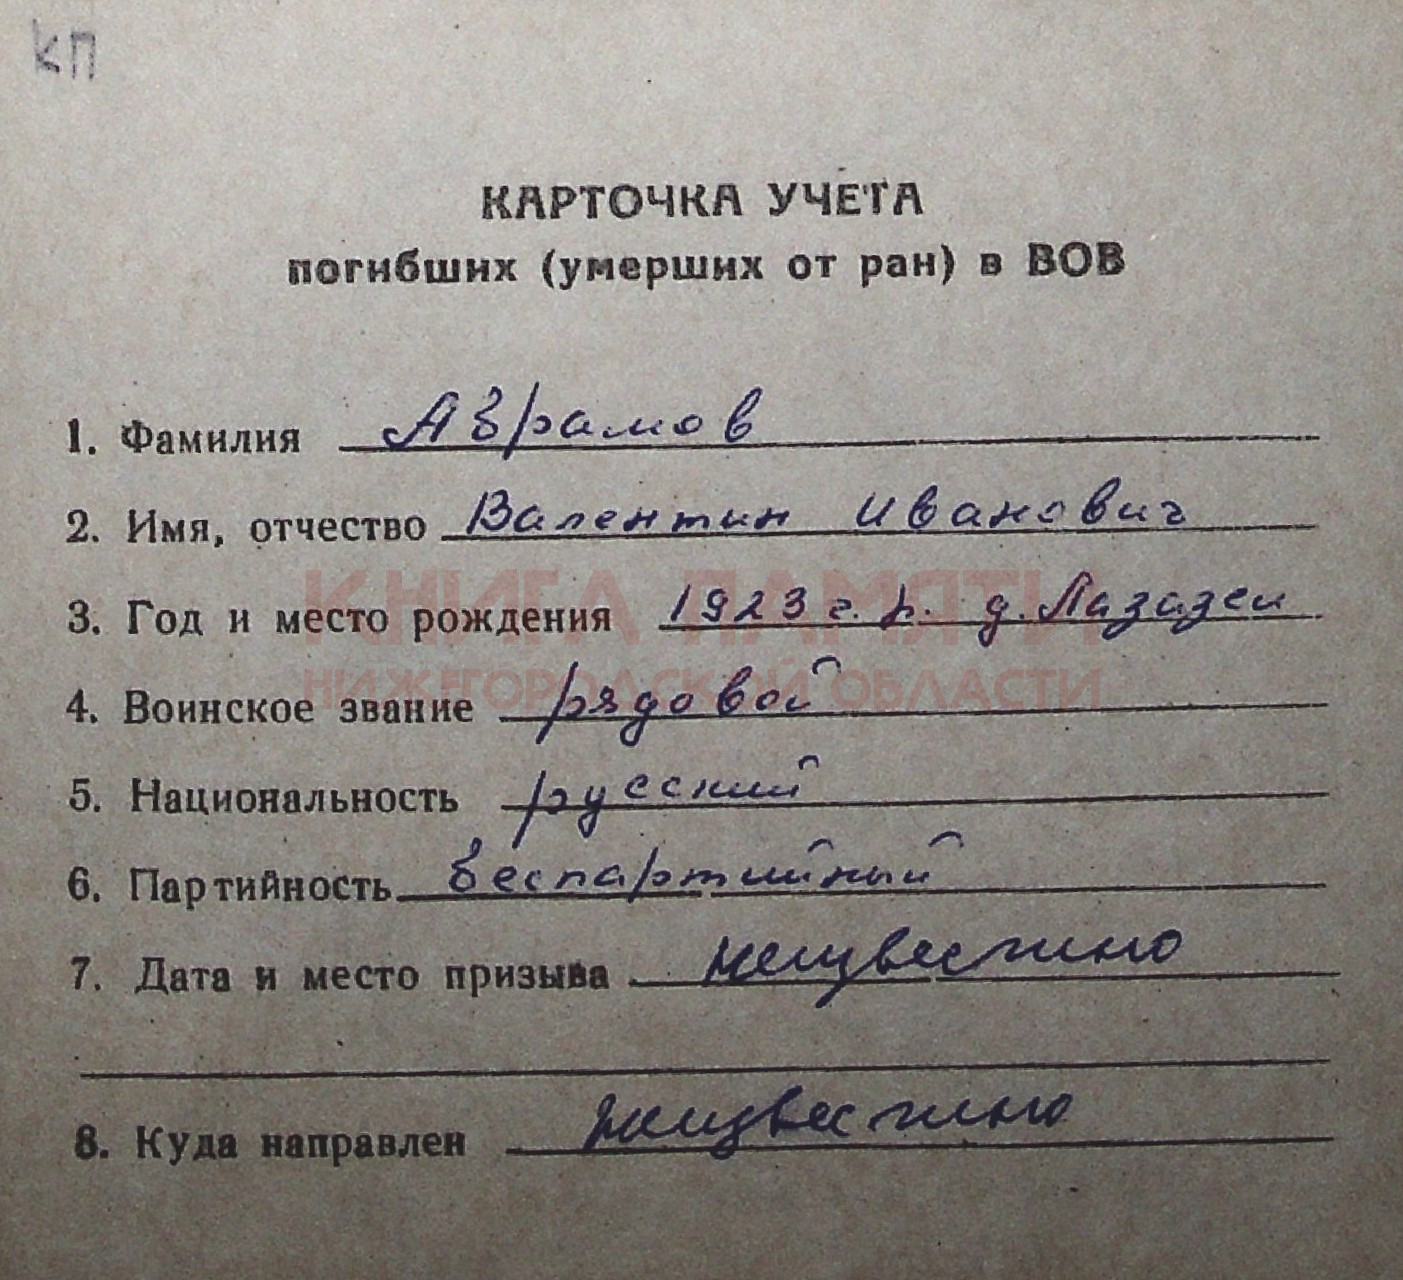 кп
КАРТОЧКА УЧЕТА
погибших (умерших от ран) в ВОВ
1. Фамилия Аврамов
2. Имя, отчество Валентин Иванович
КНИГА ПАМЯТИ
3. Год и место рождения 1923 г. р. д. Лазазеи
НИЖЕГОРОДСКОЙ ОБЛАСТИ
4. Воинское звание рядовой
5. Национальность русский
6. Партийность беспартийный
7. Дата и место призыва неизвестно
8. Куда направлен неизвестно